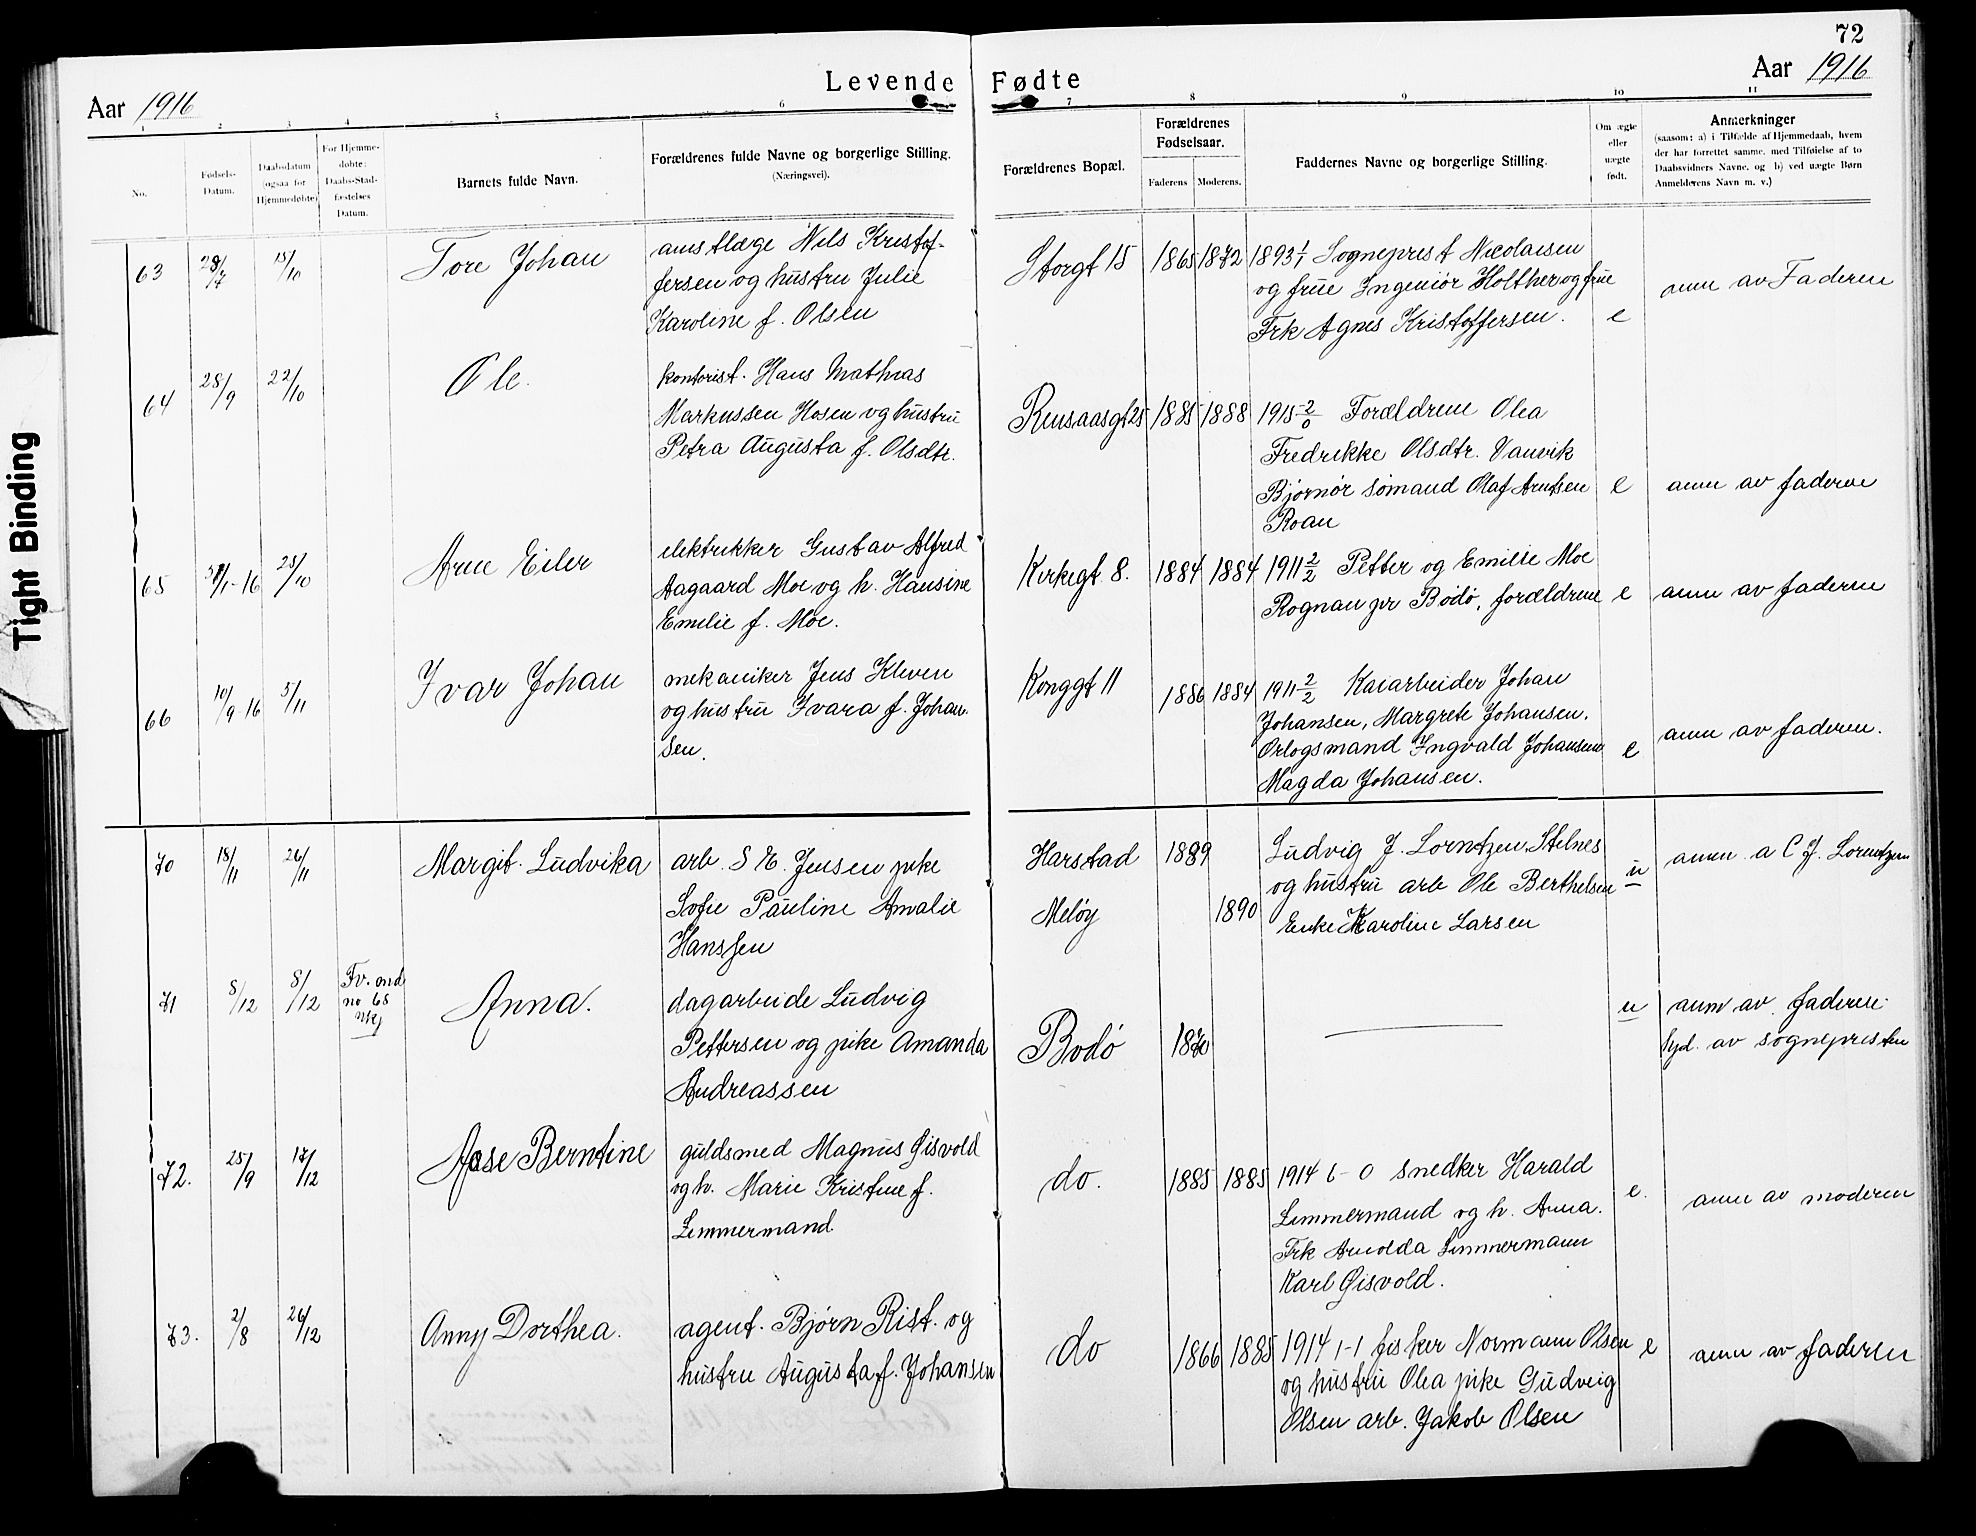 72
Levende Fødte
Aar 1916
Aar 1916
1 2 3 4 5 6 7 8 9 10 11
No.
Fødsels-
Datum.
Daabsdatum
(ogsaa for
Hjemmedøbte)
For Hjemme-
døbte:
Daabs-Stad-
fæstelses
Datum.
Barnets fulde Navn.
Forældrenes fulde Navne og borgerlige Stilling.
(Næringsvei).
Forældrenes Bopæl.
Forældrenes
Fødselsaar.
Faderens Moderens.
Faddernes Navne og borgerlige Stilling.
Om ægte
eller
uægte
født.
Anmerkninger
(saasom: a) i Tilfælde af Hjemmedaab, hvem
der har forrettet samme, med Tilføielse af to
Daabsvidners Navne, og b) ved uægte Børn
Anmelderens Navn m. v.)
63
28/7
15/10
Tore Johan
amstlæge Nils Kristof-
fersen og hustru Julie
Karoline f. Olsen
Storgt 15
1865
1872
1893 1/1 Sogneprest Nicolaisen
og frue Ingeniør Holther og frue
Frk Agnes Kristoffersen.
e
anm av Faderen
64
28/9
22/10
Ole.
kontorist. Hans Mathias
Markussen Hosen og hustru
Petra Augusta f. Olsdtr.
Rensaasgt 25
1885
1888
1915 2/0 Forældrene Olea
Fredrikke Olsdtr. Vanvik
Bjørnør sømand Olaf Arntsen
Roan
e
anm av faderen
65
1-16
25/10
Arne Eiler
elektrikker Gustav Alfred
Aagaard Moe og h. Hansine
Emelie f. Moe.
Kirkegt 8.
1884
1884
1911 2/2 Petter og Emilie Moe
Rognan pr Bodø, forældrene
e
anm av faderen
66
10/9 16
5/11
Ivar Johan
mekaniker Jens Kleven
og hustru Ivara f. Johan-
sen.
Konggt 11
1886
1884
1911 2/2 Kaiarbeider Johan
Johansen, Margrete Johansen.
Orlogsmand Ingvald Johansen
Magda Johansen.
e
anm av faderen.
70
18/11
26/11
Margit. Ludvika
arb. S E. Jensen pike
Sofie Pauline Amalie
Hanssen
Harstad
Meløy
1889
1890
Ludvig J. Lorntzen Stelnes
og hustru arb Ole Berthelsen
Enke Karoline Larsen
u
anm. a C J. Lorentzen
71
8/12
8/12
Fv. ond
no 65
Anna.
dagarbeide Ludvig
Pettersen og pike Amanda
Andreassen
Bodø
1870
u
anm av faderen.
av sognepresten
72.
25/9
17/12
Aase Berntine
guldsmed Magnus Gisvold
og h. Marie Kristine f.
Zimmermand
do.
1885
1885
1914 6-0 snedker Harald
Zimmermand og h. Anna.
Frk Arnolda Zimmermann
Karl Gisvold.
e.
anm av moderen
73.
2/8
26/12
Anny Dorthea.
agent. Bjørn Rist. og
hustru Augusta f. Johansen
do
1866
1885
1914 1-1 fisker Normann Olsen
og hustru Olea pike Gudveig
Olsen arb. Jakob Olsen
e
anm av faderen
Tight Binding